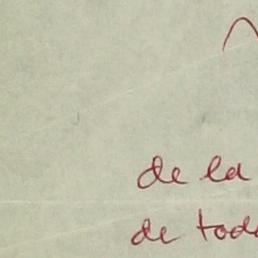 de la
de tod